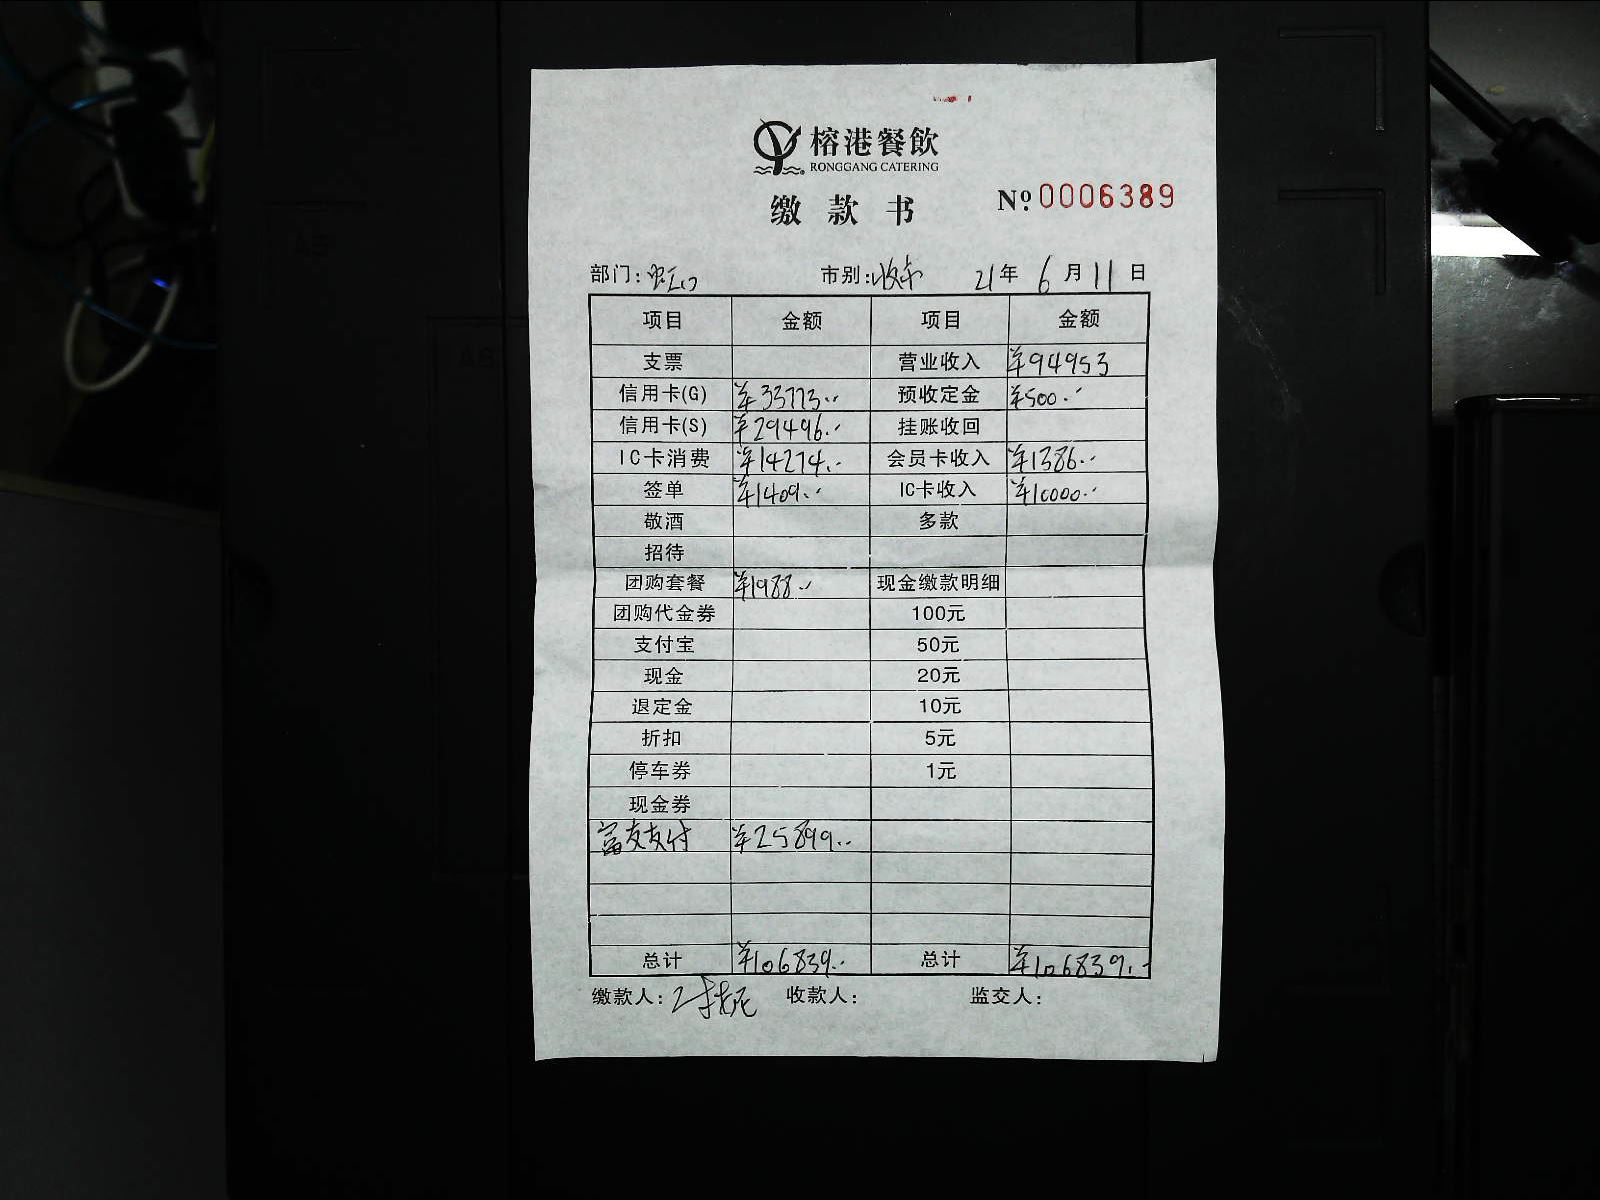 榕港餐飲
RONGGANG CATERING
缴款书 Nº 0006389
部门:虹口 市别:收市 21年6月11日
项目 金额 项目 金额
支票 营业收入 ¥94953
信用卡(G) ¥33773.-- 预收定金 ¥500.--
信用卡(S) ¥29496.-- 挂账收回
IC卡消费 ¥14274.-- 会员卡收入 ¥1386.--
签单 ¥1409.-- IC卡收入 ¥10000.--
敬酒 多款
招待
团购套餐 ¥1988.-- 现金缴款明细
团购代金券 100元
支付宝 50元
现金 20元
退定金 10元
折扣 5元
停车券 1元
现金券
富友支付 ¥25899.--
总计 ¥106839.-- 总计 ¥106839.--
缴款人: 收款人: 监交人: